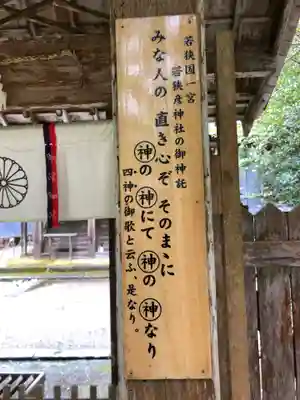 若狭国一宮
若狭彦神社の御神託
みな人の 直き心ぞ そのまゝに
㊙の㊙にて㊙の㊙なり
四神の御歌と云ふ、是なり。